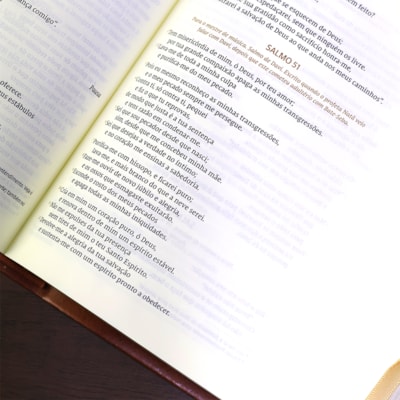 ança comigo".
Pausa
oferece.
us estábulos
se esquecem de Deus:
spedaçarei, sem que ninguém os livre.
sua gratidão como sacrifício honra-me
starei a salvação de Deus ao que anda nos meus caminhos".
SALMO 51
Para o mestre de música. Salmo de Davi. Escrito quando o profeta Natã veio
falar com Davi, depois que este cometeu adultério com Bate-Seba.
Tem misericórdia de mim, ó Deus, por teu amor;
por tua grande compaixão apaga as minhas transgressões.
Lava-me de toda a minha culpa
e purifica-me do meu pecado.
Pois eu mesmo reconheço as minhas transgressões,
e o meu pecado sempre me persegue.
Contra ti, só contra ti, pequei
e fiz o que tu reprovas,
de modo que justa é a tua sentença
e tens razão em condenar-me.
Sei que sou pecador desde que nasci;
sim, desde que me concebeu minha mãe.
Sei que desejas a verdade no íntimo;
e no coração me ensinas a sabedoria.
Purifica-me com hissopo, e ficarei puro;
lava-me, e mais branco do que a neve serei.
Faze-me ouvir de novo júbilo e alegria,
e os ossos que esmagaste exultarão.
Esconde o rosto dos meus pecados
e apaga todas as minhas iniquidades.
Cria em mim um coração puro, ó Deus,
e renova dentro de mim um espírito estável.
Não me expulses da tua presença
nem tires de mim o teu Santo Espírito.
Devolve-me a alegria da tua salvação
e sustenta-me com um espírito pronto a obedecer.